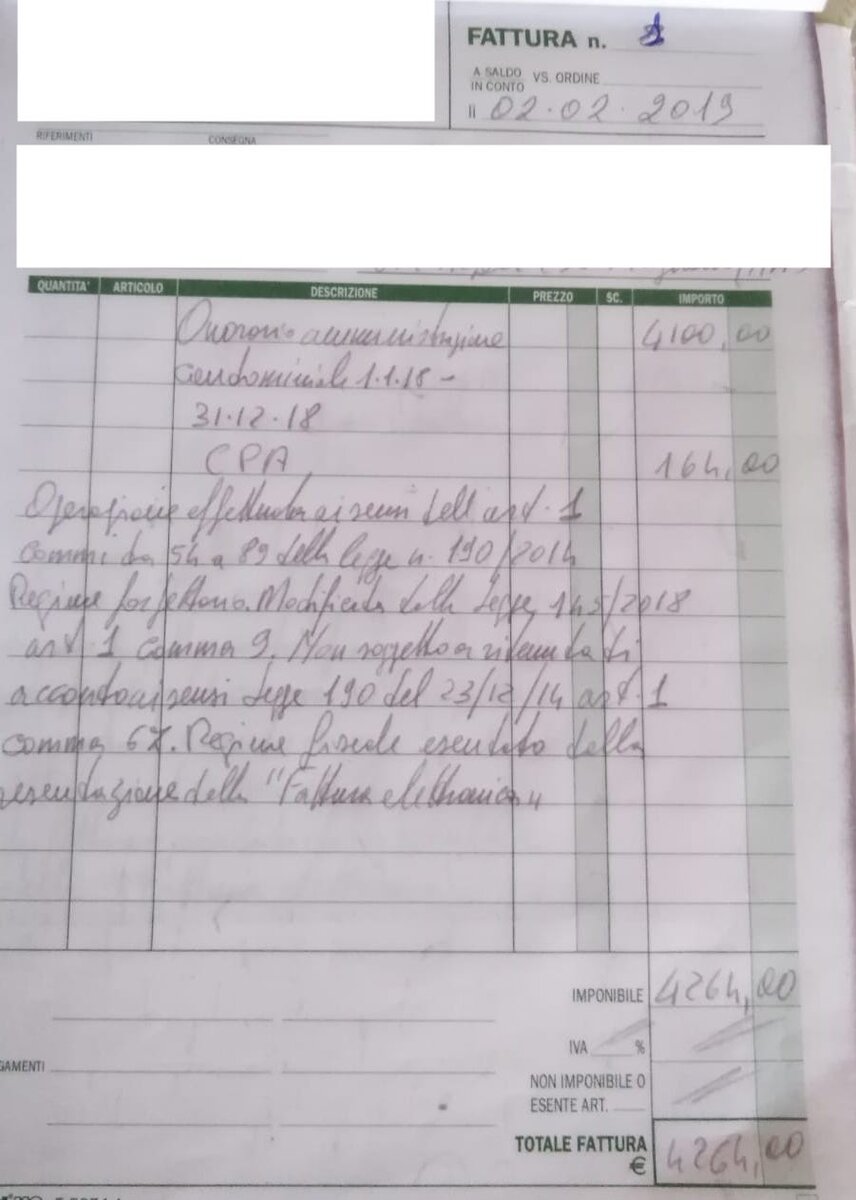 FATTURA n. 1
A SALDO
IN CONTO
VS. ORDINE
li 02.02.2019
RIFERIMENTI CONSEGNA
QUANTITA' ARTICOLO DESCRIZIONE PREZZO SC. IMPORTO
Onorario amministrazione 4100,00
condominiale 1.1.18 -
31.12.18
CPA 164,00
Operazione effettuata ai sensi dell'art. 1
commi da 54 a 89 della legge n. 190/2014
Regime forfettario. Modificata dalla Legge 145/2018
art. 1 comma 9. Non soggetto a ritenuta di
acconto ai sensi Legge 190 del 23/12/14 art. 1
comma 67. Regime fiscale esentato dalla
presentazione della "Fattura elettronica"
IMPONIBILE 4264,00
IVA %
GAMENTI
NON IMPONIBILE O
ESENTE ART.
TOTALE FATTURA
€ 4264,00